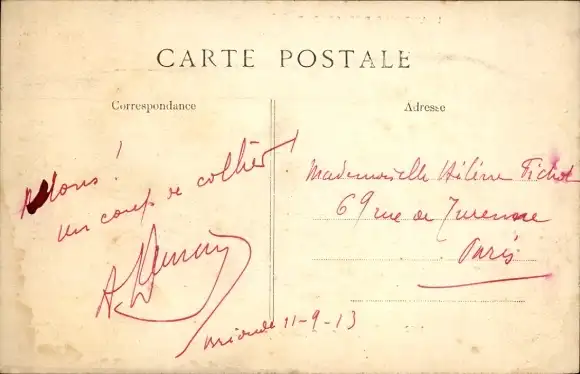 CARTE POSTALE
Correspondance
Allons !
un coup de collier !
Adresse
Mademoiselle Hélène Fichot
69 rue de Turenne
Paris
11-9-13